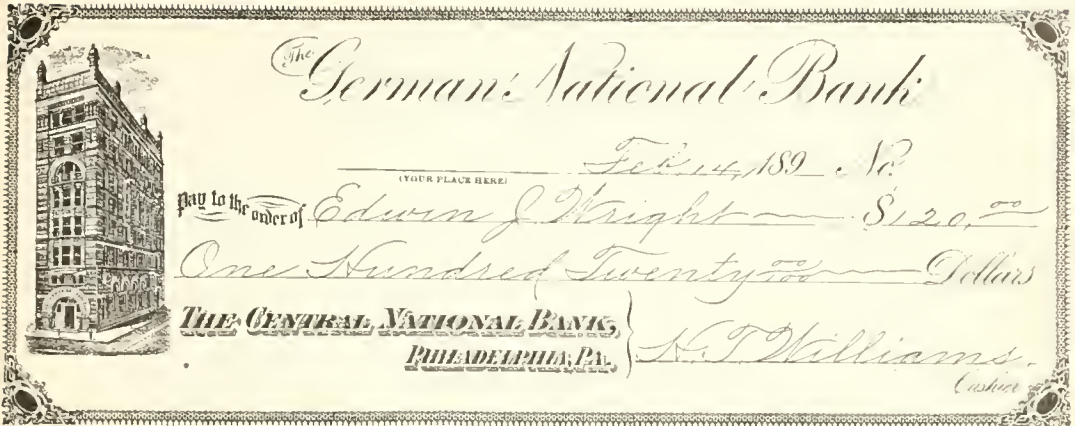 The German National Bank
Feb. 14, 189 No.
(YOUR PLACE HERE)
Pay to the order of Edwin J Wright $120.00
One Hundred Twenty 00/100 Dollars
THE CENTRAL NATIONAL BANK,
PHILADELPHIA, PA.
H. T. Williams.
Cashier